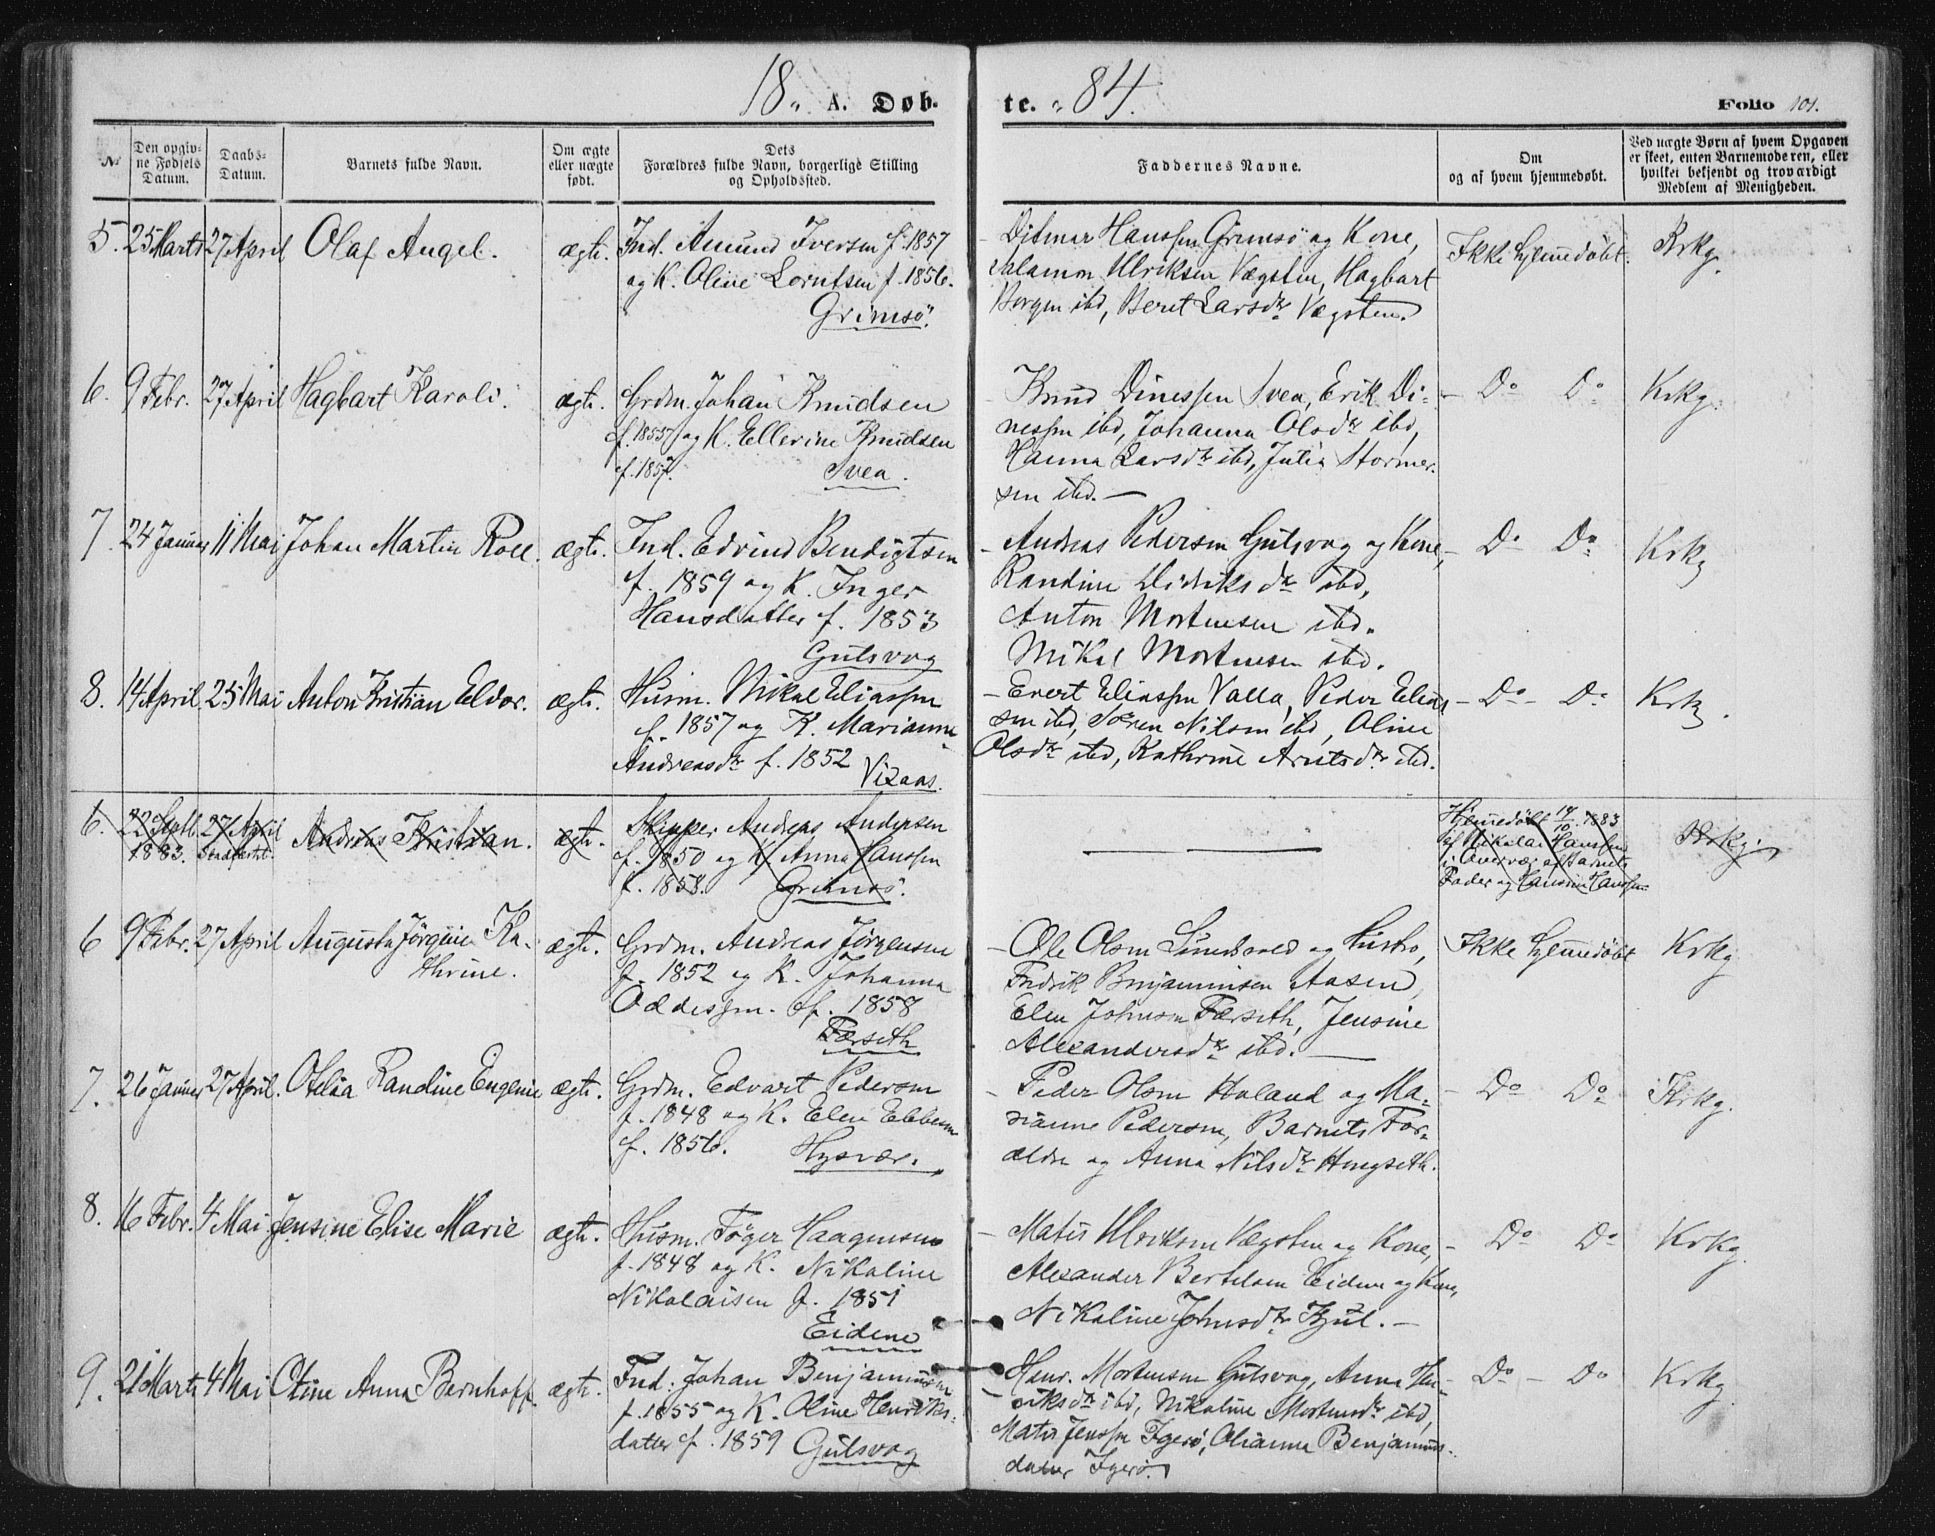 18 „ A. Døb-
te. „ 84.
Folio 101.
№
Den opgiv-
ne Fødsels
Datum.
Daabs-
Datum.
Barnets fulde Navn.
Om ægte
eller uægte
født.
Dets
Forældres fulde Navn, borgerlige Stilling
og Opholdssted.
Faddernes Navne.
Om
og af hvem hjemmedøbt.
Ved uægte Børn af hvem Opgaven
er skeet, enten Barnemoderen, eller
hvilket bekjendt og troværdigt
Medlem af Menigheden.
5. 25 Marts 27 April Olaf Angel. ægte.
Ind. Amund Iversen f. 1857
og K. Oline Lorntsen f. 1856.
Grimsö.
Ditmar Hanssen Grimsö og Kone,
Salamon Ulriksen Vægsten, Hagbart
Borgen ibd, Beret Larsdr Vægsten.
Ikke hjemmedøbt. Krkg.
6. 9 Febr. 27 April Hagbart Karoli. ægte.
Grdm. Johan Knudsen
f. 1855 og K. Ellerine Knudsen
f. 1857. Svea.
Knud Dinessen Svea, Erik Di-
nessen ibd, Johanna Olsdr ibd,
Hanna Larsdr ibd, Julia Stormer-
sen ibd. —
Do Do Krkg.
7. 24 Januar 11 Mai Johan Martin Roel. ægte.
Ind. Edvind Bendigtsen
f. 1859 og K. Inger
Hansdatter f. 1853
Gulsvog
Andreas Pedersen Gulsvog og Kone,
Randine Didriksdr ibd,
Anton Mortensen ibd.
Mikal Mortensen ibd.
Do Do Krkg
8. 14 April 25 Mai Anton Kristian Eldor. ægte.
Husm. Mikal Eliassen
f. 1857 og K. Marianne
Andreasdr f. 1852
Evert Eliassen Valla, Peder Elias
sen ibd, Sören Nilsen ibd, Oline
Olsdr ibd, Kathrine Arntsdr ibd.
Do Do Krkg.
6. 22 Septb. 27 April
1883.
Andreas Kristian. ægte.
Skipper Andreas Andersen
f. 1850 og K. Anna Hanssen
f. 1858. Grimsö.
Hjemmedøbt 14/10 1883
af Nikolai Hanssen
i Overvær af Barnets
Fader og Hansine Hanssen
Krkg.
6 9 Febr. 27 April Augusta Jörgine Ka-
thrine. ægte.
Grdm. Andreas Jörgensen
f. 1852 og K. Johanna
Oddessen. f. 1858
Færseth
Ole Olsen Sundsvold og Hustro,
Fredrik Benjaminsen Aasen,
Elen Johnsen Færseth, Jensine
Alexandersdr ibd. —
Ikke hjemmedøbt Krkg
7. 26 Januar 27 April. Otelia Randine Eugenie ægte.
Grdm. Edvart Pedersen
f. 1848 og K. Elen Ebbesen
f. 1856. Hysvær.
Peder Olsen Holand og Ma-
rianne Pedersen, Barnets For-
ældre og Anna Nilsdr Hongseth.
Do Do Krkg.
8. 16 Febr. 4 Mai Jensine Elise Marie ægte.
Husm. Föger Haagensen
f. 1848 og K. Nikoline
Nikolaisen f. 1851
Eidene
Matis Ulriksen Vægsten og Kone,
Alexander Bertelsen Eidene og Kone,
Nikoline Johnsdr Kjul. —
Do Do Krkg.
9. 21 Marts 4 Mai Otine Anna Bernhoff. ægte.
Ind. Johan Benjaminsen
f. 1855 og K. Oline Henriks-
datter f. 1859 Gulsvog
Henr. Mortensen Gulsvog, Anna Hen-
riksdr ibd, Nikoline Mortensdr ibd,
Matis Jenssen Igerö, Olianna Benjamins-
datter Igerö.
Do Do Krkg.